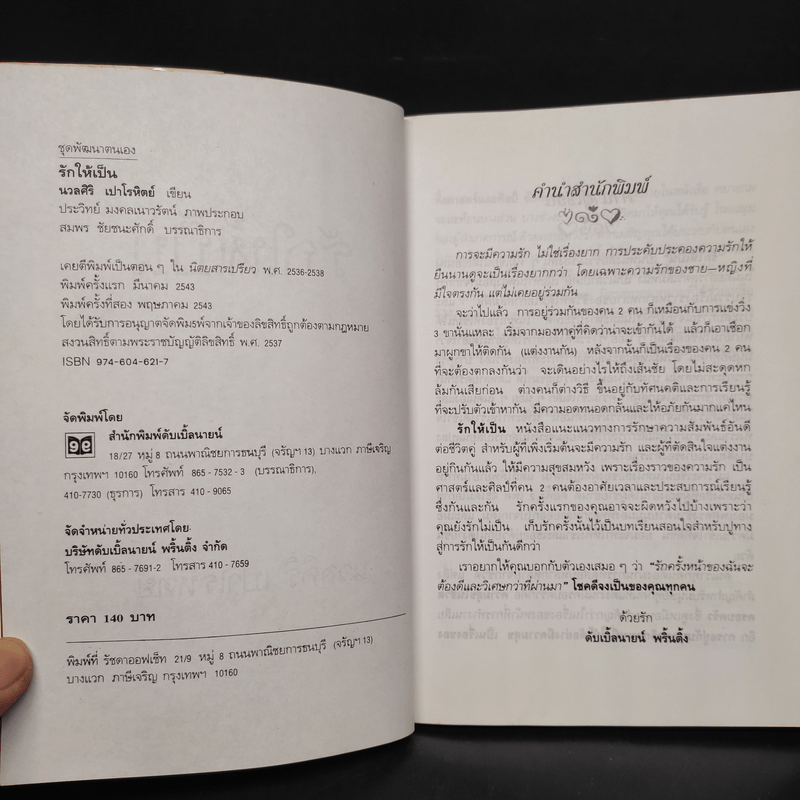 ชุดพัฒนาตนเอง
รักให้เป็น
นวลศิริ เปาโรหิตย์ เขียน
ประวิทย์ มงคลเนาวรัตน์ ภาพประกอบ
สมพร ชัยชนะศักดิ์ บรรณาธิการ
เคยตีพิมพ์เป็นตอน ๆ ใน นิตยสารเปรียว พ.ศ. 2536-2538
พิมพ์ครั้งแรก มีนาคม 2543
พิมพ์ครั้งที่สอง พฤษภาคม 2543
โดยได้รับการอนุญาตจัดพิมพ์จากเจ้าของลิขสิทธิ์ถูกต้องตามกฎหมาย
สงวนสิทธิ์ตามพระราชบัญญัติลิขสิทธิ์ พ.ศ. 2537
ISBN 974-604-621-7
จัดพิมพ์โดย
สำนักพิมพ์ดับเบิ้ลนายน์
18/27 หมู่ 8 ถนนพาณิชยการธนบุรี (จรัญฯ 13) บางแวก ภาษีเจริญ
กรุงเทพฯ 10160 โทรศัพท์ 865-7532-3 (บรรณาธิการ),
410-7730 (ธุรการ) โทรสาร 410-9065
จัดจำหน่ายทั่วประเทศโดย
บริษัทดับเบิ้ลนายน์ พริ้นติ้ง จำกัด
โทรศัพท์ 865-7691-2 โทรสาร 410-7659
ราคา 140 บาท
พิมพ์ที่ รัชดาออฟเซ็ท 21/9 หมู่ 8 ถนนพาณิชยการธนบุรี (จรัญฯ 13)
บางแวก ภาษีเจริญ กรุงเทพฯ 10160
คำนำสำนักพิมพ์
การจะมีความรัก ไม่ใช่เรื่องยาก การประคับประคองความรักให้
ยืนนานดูจะเป็นเรื่องยากกว่า โดยเฉพาะความรักของชาย-หญิงที่
มีใจตรงกัน แต่ไม่เคยอยู่ร่วมกัน
จะว่าไปแล้ว การอยู่ร่วมกันของคน 2 คน ก็เหมือนกับการแข่งวิ่ง
3 ขานั่นแหละ เริ่มจากมองหาคู่ที่คิดว่าน่าจะเข้ากันได้ แล้วก็เอาเชือก
มาผูกขาให้ติดกัน (แต่งงานกัน) หลังจากนั้นก็เป็นเรื่องของคน 2 คน
ที่จะต้องตกลงกันว่า จะเดินอย่างไรให้ถึงเส้นชัย โดยไม่สะดุดหก
ล้มกันเสียก่อน ต่างคนก็ต่างวิธี ขึ้นอยู่กับทัศนคติและการเรียนรู้
ที่จะปรับตัวเข้าหากัน มีความอดทนอดกลั้นและให้อภัยกันมากแค่ไหน
รักให้เป็น หนังสือแนะแนวทางการรักษาความสัมพันธ์อันดี
ต่อชีวิตคู่ สำหรับผู้ที่เพิ่งเริ่มต้นจะมีความรัก และผู้ที่ตัดสินใจแต่งงาน
อยู่กินกันแล้ว ให้มีความสุขสมหวัง เพราะเรื่องราวของความรัก เป็น
ศาสตร์และศิลป์ที่คน 2 คนต้องอาศัยเวลาและประสบการณ์เรียนรู้
ซึ่งกันและกัน รักครั้งแรกของคุณอาจจะผิดหวังไปบ้างเพราะว่า
คุณยังรักไม่เป็น เก็บรักครั้งนั้นไว้เป็นบทเรียนสอนใจสำหรับปูทาง
สู่การรักให้เป็นกันดีกว่า
เราอยากให้คุณบอกกับตัวเองเสมอ ๆ ว่า "รักครั้งหน้าของฉันจะ
ต้องดีและวิเศษกว่าที่ผ่านมา" โชคดีจงเป็นของคุณทุกคน
ด้วยรัก
ดับเบิ้ลนายน์ พริ้นติ้ง